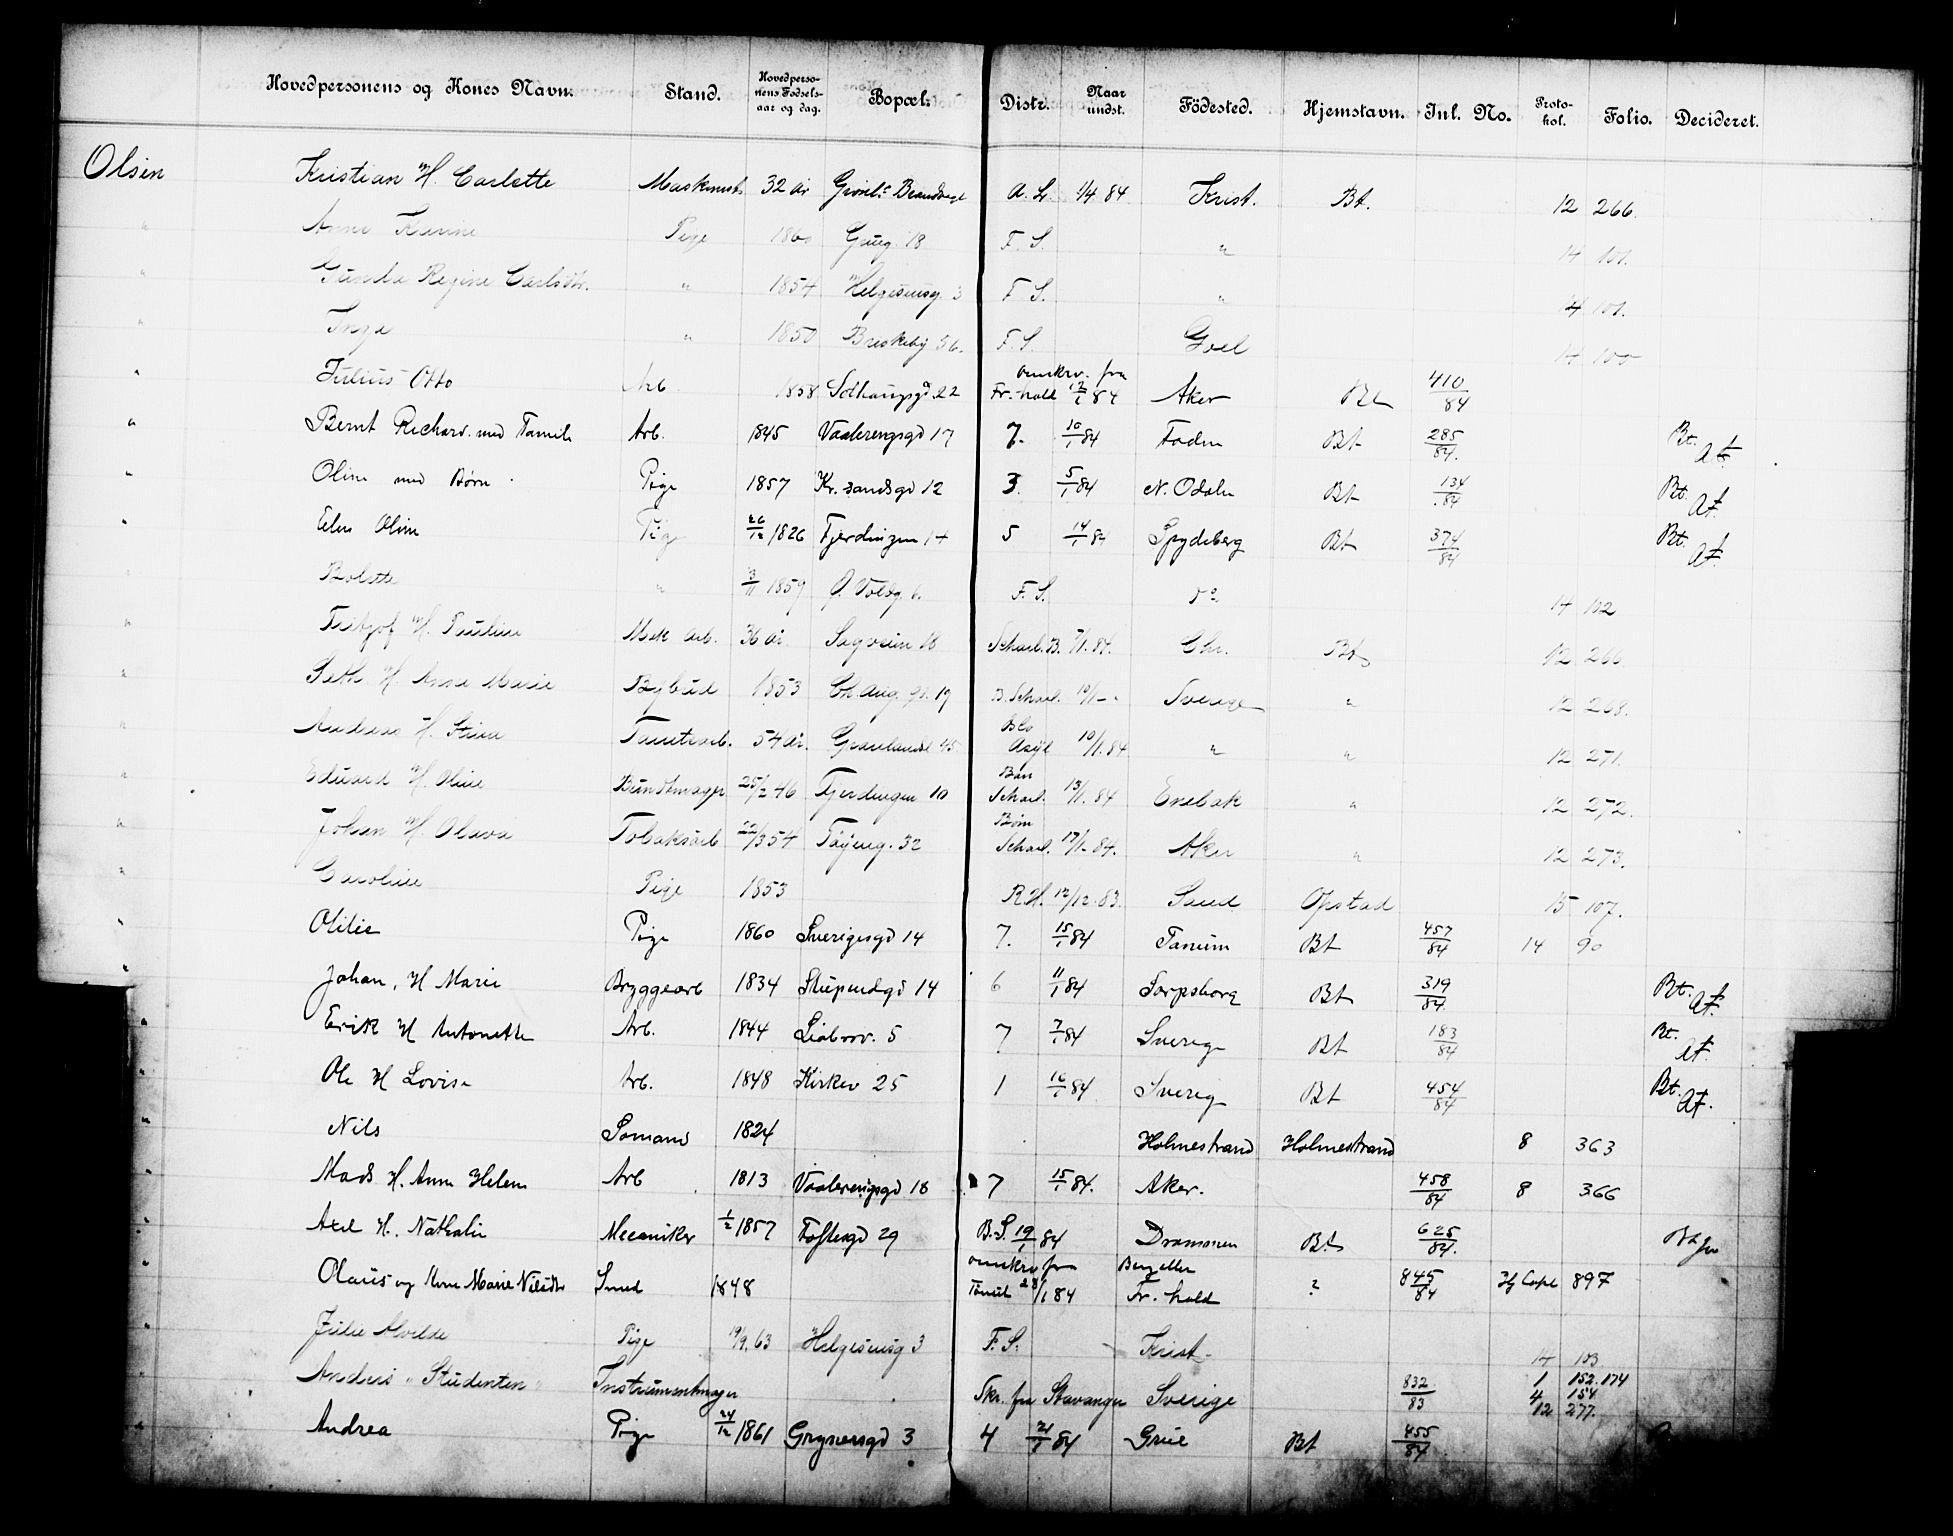 Hovedpersonens og Kones Navn. Stand. Hovedpersonens Fødselsaar og dag. Bopæl. Distr. Naar undst. Födested. Hjemstavn. Inl. No. Protokol. Folio. Decideret.
Olsen Kristian H. Carlotte Maskinist 32 år Grönl. A. L. 1/4 84 Krist. Bt. 12 266.
" Anne Karine Pige 1860 18 F. S. " 14 101.
" Gunda Regine Carlsdtr. " 1854 Helgesensg. 3 F S. " 4 101.
" Inga " 1850 Briskeby 56. F. S. 14 100
" Julius Otto Arb. 1858 22 omskrv. fra Fr.hald 12/1 84 Aker Bt 410/84
" Bernt Richard med Famili Arb. 1845 Vaalerengsgd 17 7. 10/1 84 Bt 285/84. Bt. Af.
" Oline med Børn Pige 1857 Kr.sandsgd 12 3. 5/1 84 N. Odalen Bt 134/84 Bt. Af.
" Elen Oline Pige 26/12 1826 Fjerdingen 14 5 14/1 84 Spydeberg Bt 374/84 Bt. Af.
" Bolette " 3/11 1859 F. S. do. 14 102
" Fritjof H. Pauline Mek arb. 36 år. Sagveien 18 7/1. 84. Chr. Bt 12 266
" Seth H. Anne Marie Bybud 1853 Ch. Aug. gd. 19 10/1 - " Sverige " 12 268.
" Andreas H. Stina 54 år. Grønlandsl 45. Asyl 10/1.84 " " 12 271.
" Eduard H. Oline Bundtmager 25/2 46 Fjerdingen 10 13/1. 84 Enebak " 12 272.
" Johan H. Olava Tobaksarb 22/3 54 Tøyeng. 32 17/1. 84. Aker " 12 273.
" Caroline Pige 1853 R.H. 12/12.83. Sand Opstad 15 107.
" Otilie Pige 1860 Sverigesgd 14 7. 15/1 84 Tanum Bt 457/84 14 90
" Johan, H Marie Bryggearb 1834 Stupendgd 14 6 11/1 84 Sarpsborg Bt 319/84. Bt. Af.
" Erik H Antonette Arb. 1844 Liabrov. 5 7 7/1 84 Sverige Bt 183/84 Bt. Af.
" Ole H Lovise Arb. 1848 Kirkev 25 1 16/1 84 Sverig Bt 454/84 Bt. Af.
" Nils Sømand 1824 Holmestrand Holmestrand 8 363
" Mads H. Anne Helene Arb 1813 Vaalerengsgd 18 7 15/1 84. Aker. 458/84 8 366
" Axel H. Nathalie Mecaniker 1/2 1857 Toftesgd 29 B.S. 19/1 84 Drammen Bt 625/84.
" Olaus og Kone Marie Nilsdtr Smed 1848 omskrv fra 28/1 84 Fr.hald ? 845/84 897
" Julie Alvilde Pige 19/9. 63 Helgesensg 3 F. S. Krist. 14 103
" Anders "Studenten" Instrumentmager Skr. fra Stavanger Sverige 832/83 1 152.174 4 154 12 277.
" Andrea Pige 24/12 1861 Grynersgd 3 4 21/1 84 Grue Bt 455/84